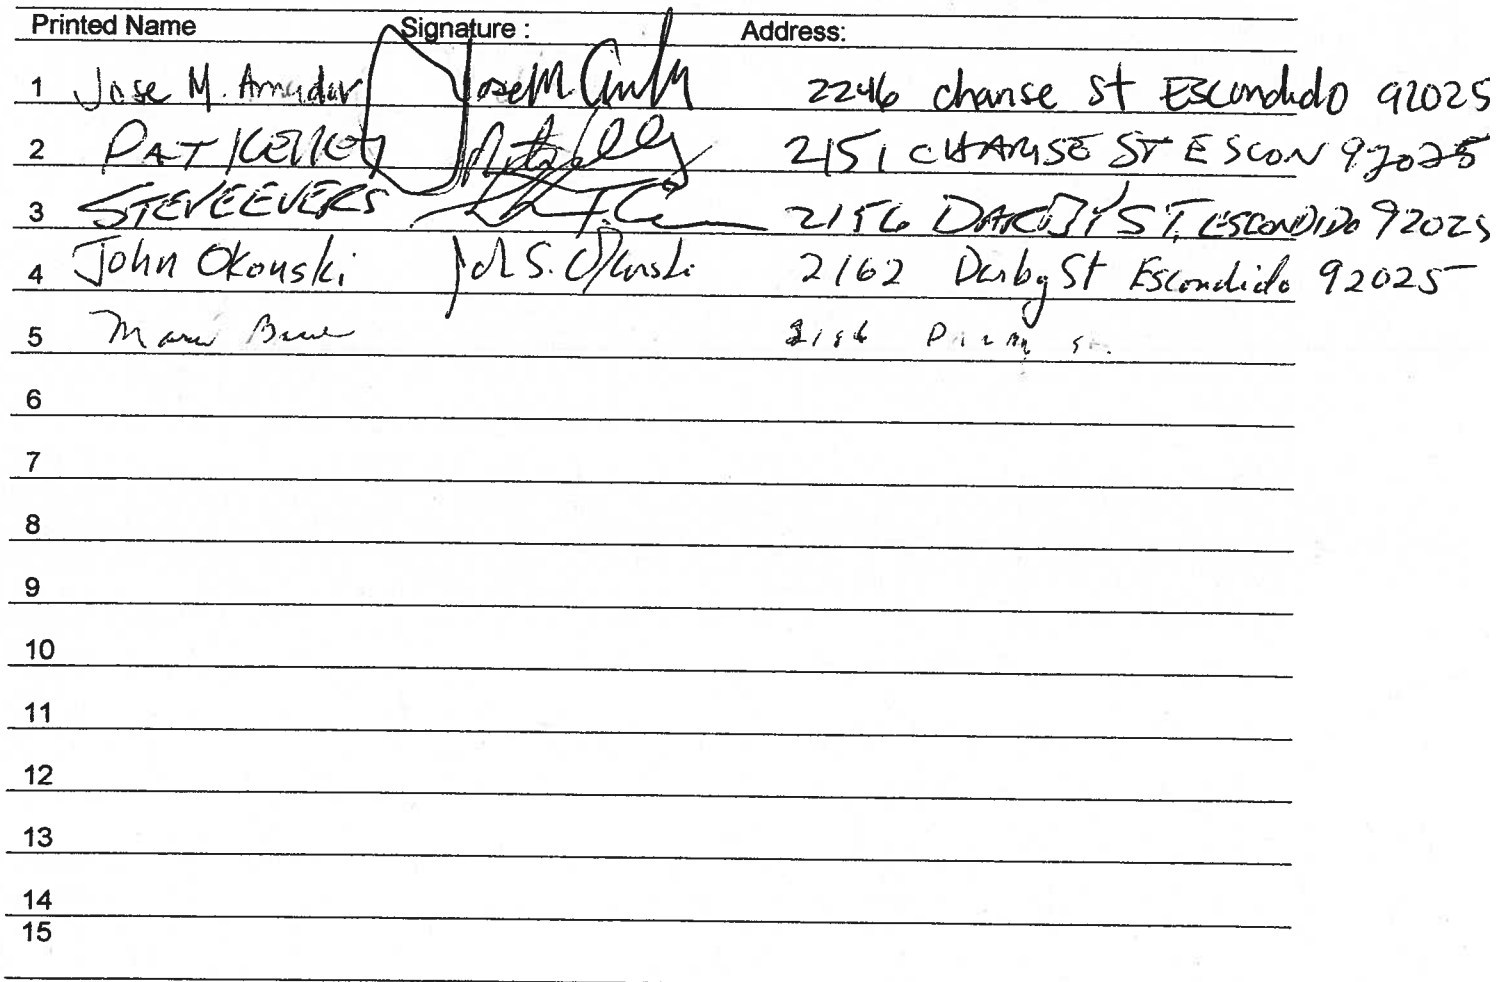 Printed Name Signature : Address:
1 Jose M. Amador Jose M. 2246 chanse St Escondido 92025
2 PAT KELLEY 2151 CHANSE ST ESCON 92025
3 STEVE EVERS 2156 DARBY ST, ESCONDIDO 92025
4 John Okonski John S. Okonski 2162 Darby St Escondido 92025
5 St.
6
7
8
9
10
11
12
13
14
15